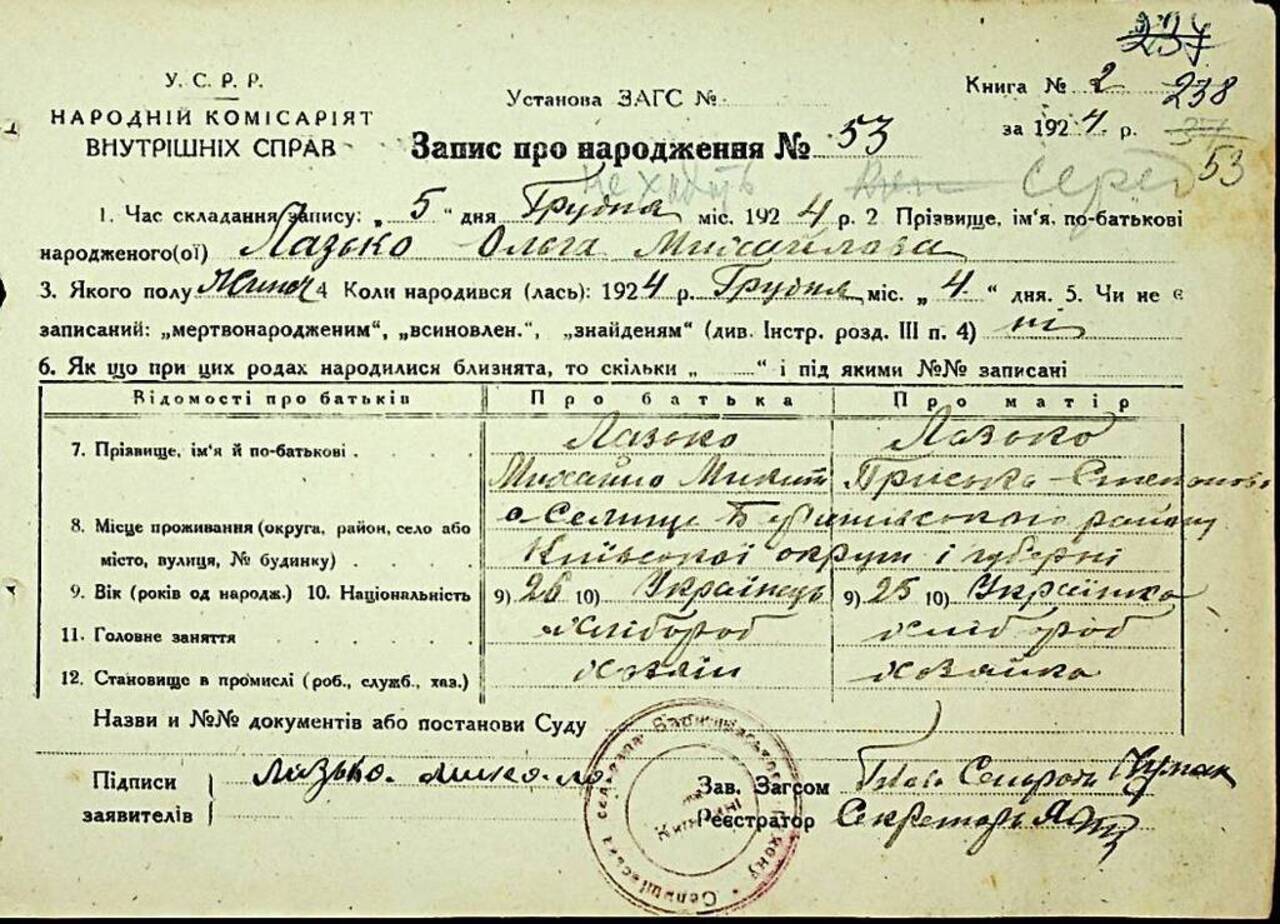 237
У. С. Р. Р.
НАРОДНІЙ КОМІСАРІЯТ
ВНУТРІШНІХ СПРАВ
Установа ЗАГС №
Книга № 2 238
за 1924 р. 37
Запис про народження № 53
53
1. Час складання запису: „ 5 “ дня Грудня міс. 1924 р. 2 Прізвище, ім'я, по-батькові
народженого(ої) Лазько Ольга Михайлова
3. Якого полу Жіноч 4 Коли народився (лась): 1924 р. Грудня міс. „ 4 “ дня. 5. Чи не є
записаний: „мертвонародженим“, „всиновлен.“, „знайденям“ (див. Інстр. розд. III п. 4) ні
6. Як що при цих родах народилися близнята, то скільки „ “ і під якими №№ записані
Відомості про батьків Про батька Про матір
Лазько Лазько
7. Прізвище, ім'я й по-батькові
Михайло Микит Приська Степанова
8. Місце проживання (округа, район, село або
с Селище Районy
місто, вулиця, № будинку)
Київської округи і губерні
9. Вік (років од народж.) 10. Національність 9) 26 10) Українець 9) 25 10) Українка
11. Головне заняття хлібороб хлібороб
12. Становище в промислі (роб., служб., хаз.) хазяїн хазяйка
Назви и №№ документів або постанови Суду
Підписи
заявителів
Лазько
Зав. Загсом Голова Сельради Чумак
Реєстратор Секретарь